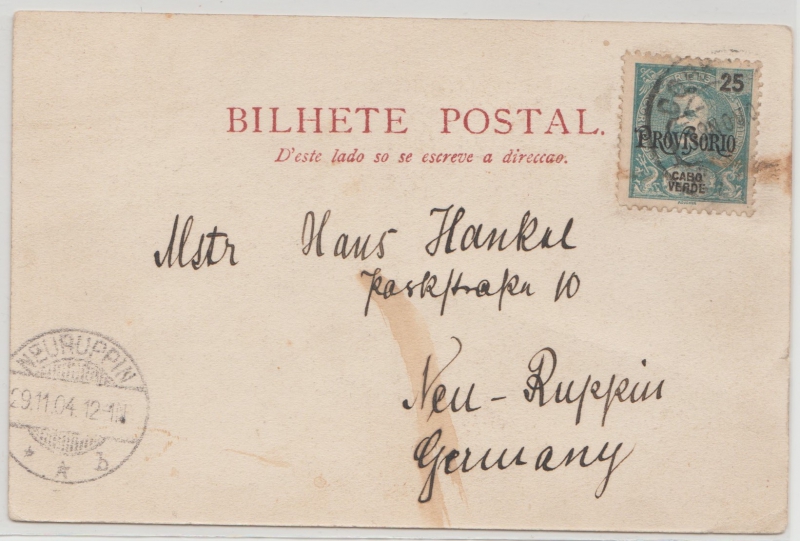 BILHETE POSTAL.
D'este lado so se escreve a direccao.
25
PROVISORIO
CABO
VERDE
Mstr Hans Hankel
Parkstraße 10
Neu-Ruppin
Germany
NEURUPPIN
29.11.04.12-1N
* b